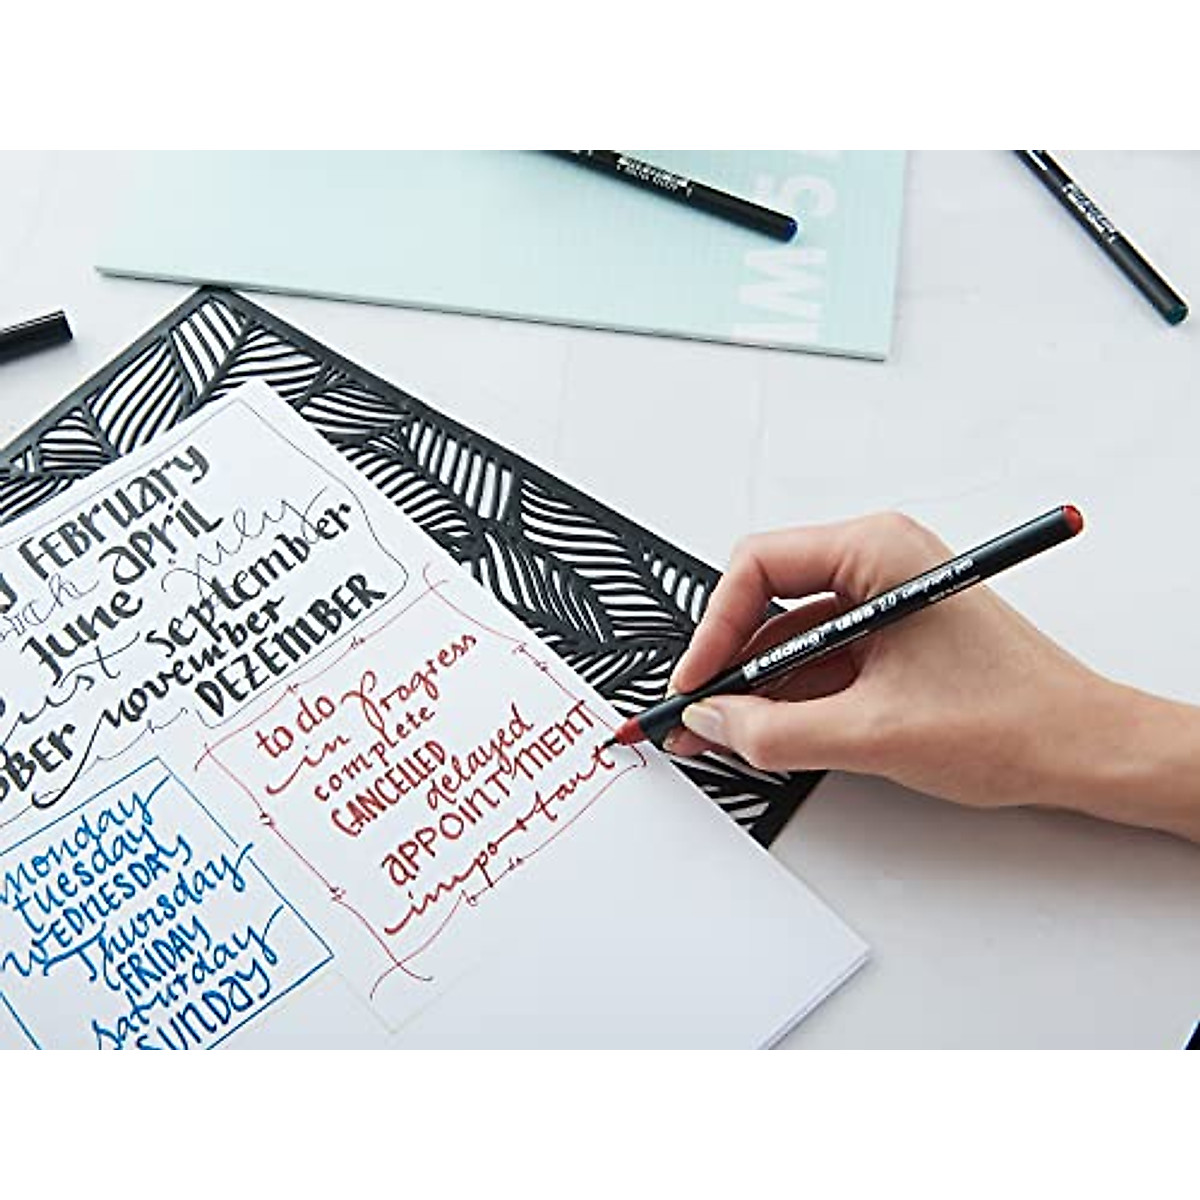 February
April
July
June
September
November
DEZEMBER
monday
tuesday
WEDNESDAY
Thursday
FRIDAY
saturday
SUNDAY
to do
in progress
complete
CANCELLED
delayed
APPOINTMENT
important
edding 1255 2.0 calligraphy pen